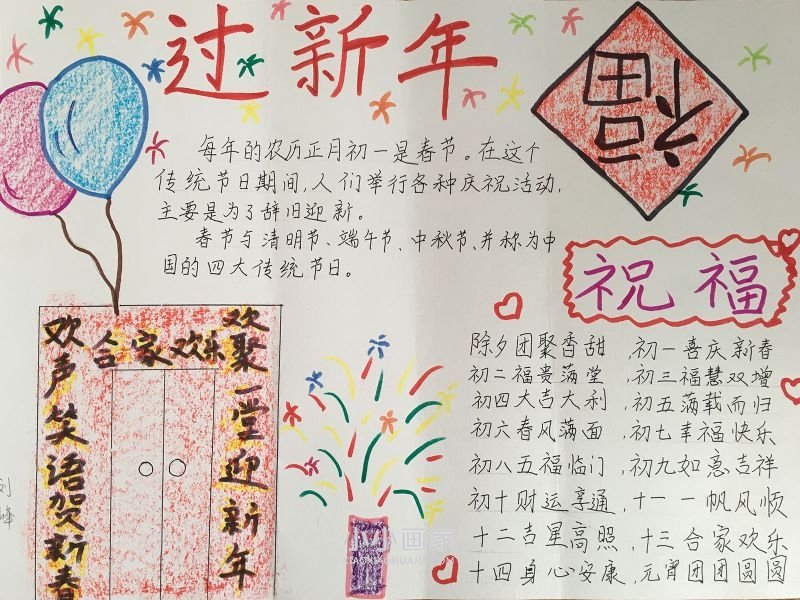 过新年
福
每年的农历正月初一是春节。在这个
传统节日期间,人们举行各种庆祝活动,
主要是为了辞旧迎新。
春节与清明节、端午节、中秋节、并称为中
国的四大传统节日。
祝福
除夕团聚香甜,初一喜庆新春
初二福贵满堂,初三福慧双增
初四大吉大利,初五满载而归
初六春风满面,初七幸福快乐
初八五福临门,初九如意吉祥
初十财运享通,十一一帆风顺
十二吉星高照,十三合家欢乐
十四身心安康,元宵团团圆圆
合家欢乐
欢声笑语贺新春
欢聚一堂迎新年
小小画家